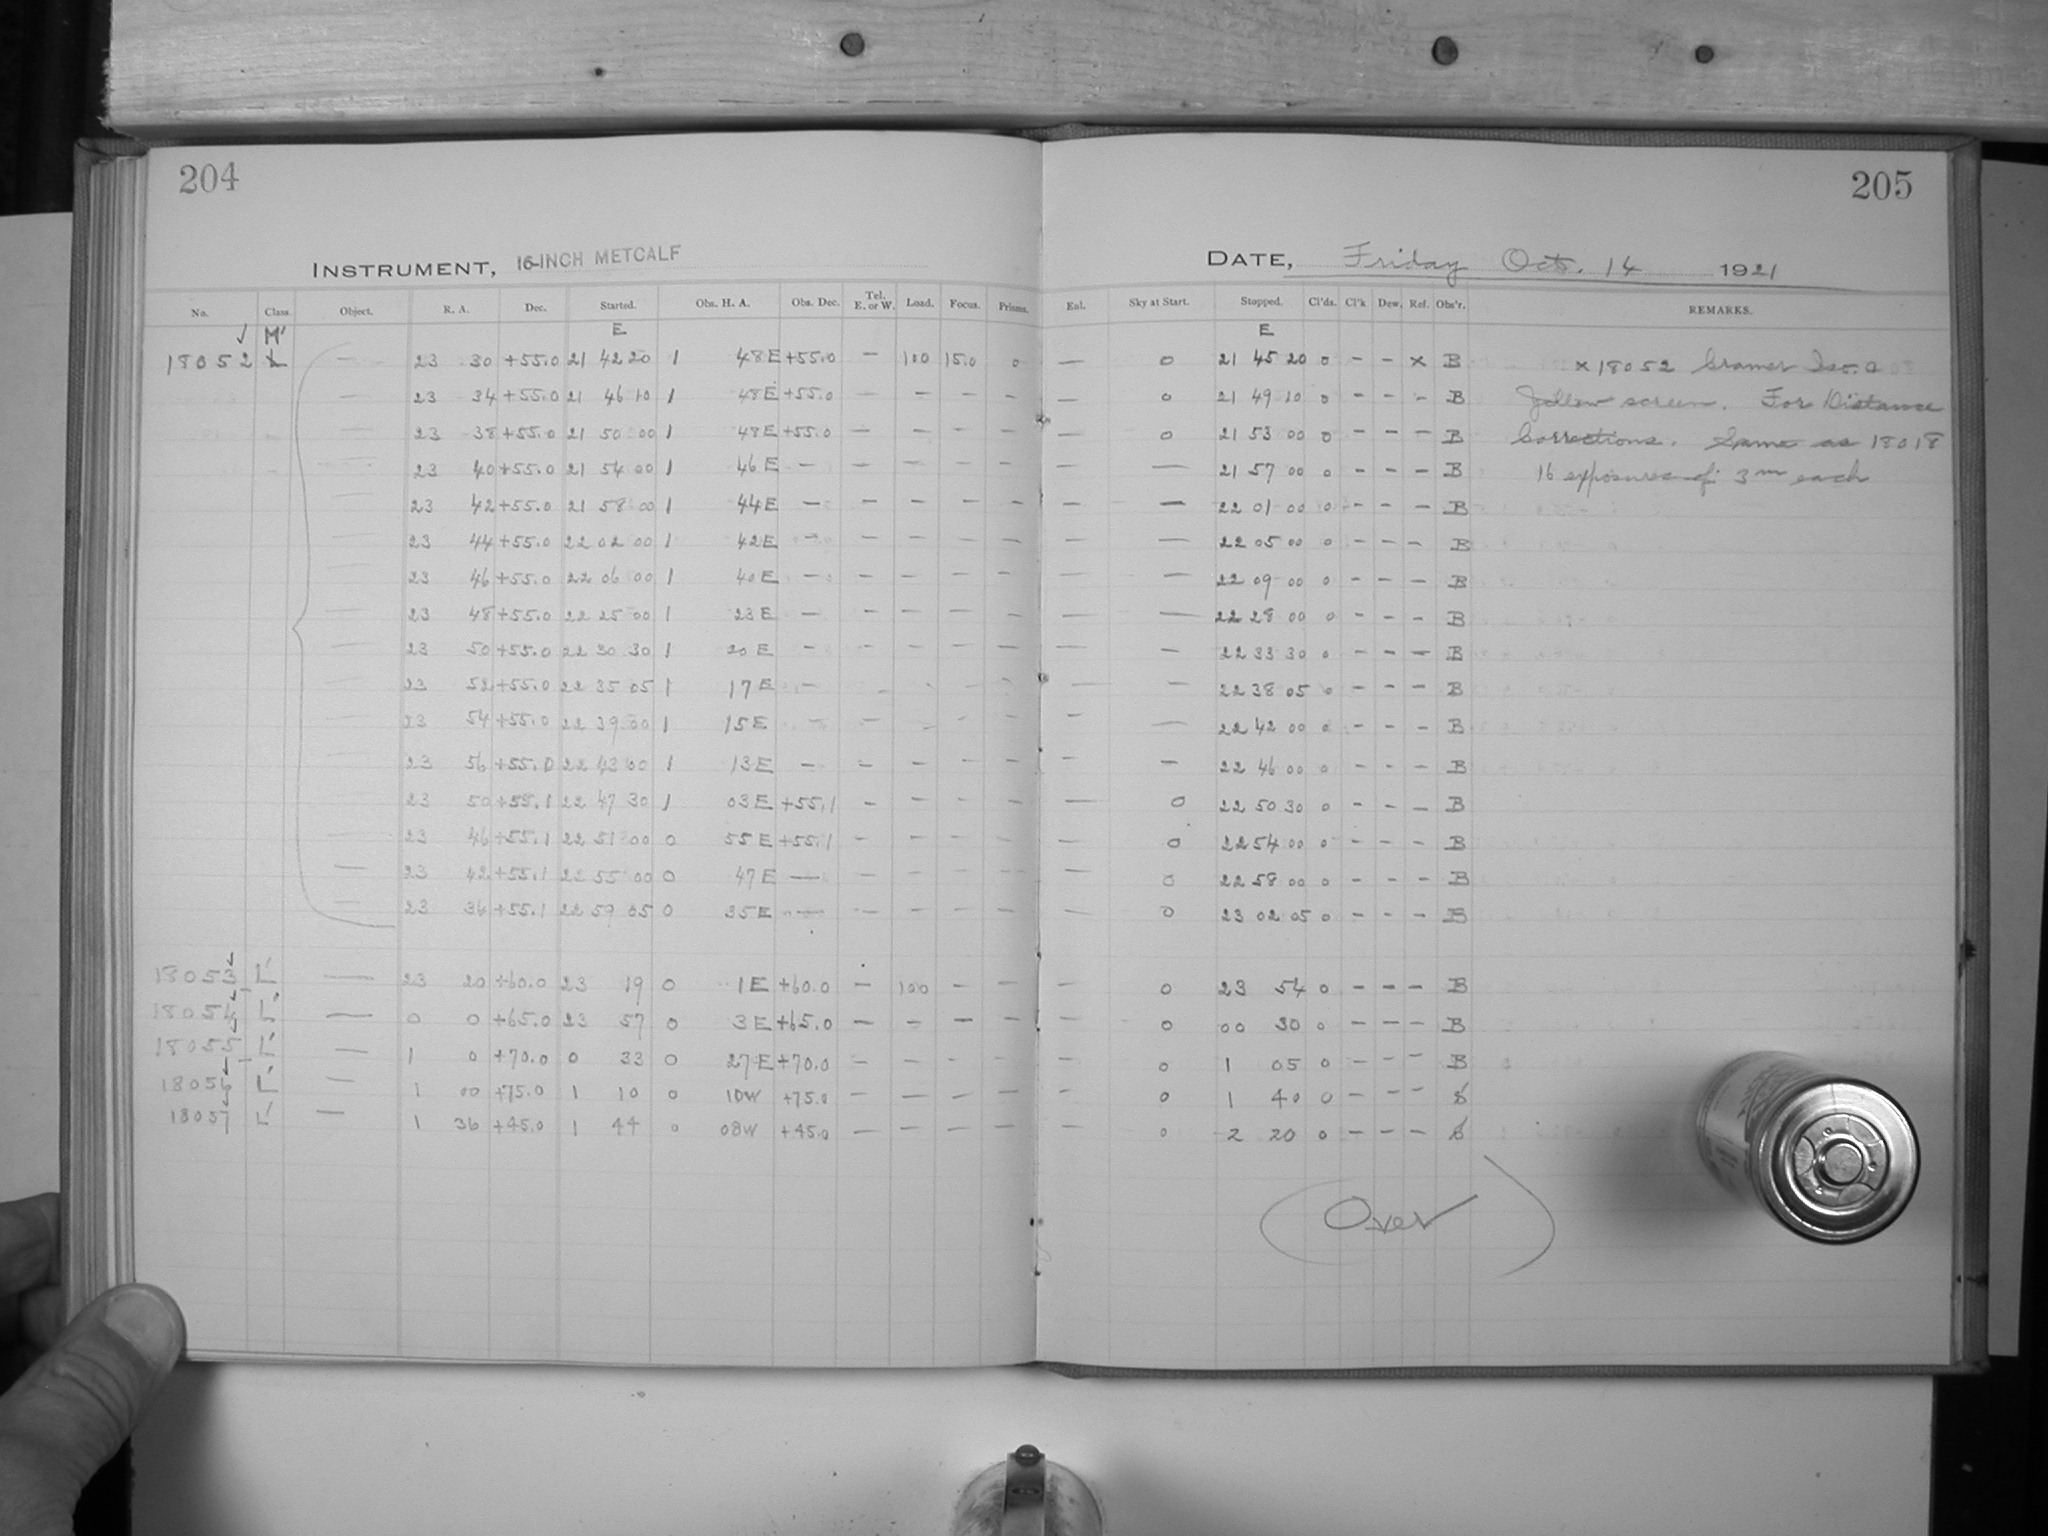 204
205
INSTRUMENT, 16-INCH METCALF
DATE, Friday Oct. 14 1921
No. Class. Object. R. A. Dec. Started. Obs. H. A. Obs. Dec. Tel. E. or W. Load. Focus. Prisms. Enl. Sky at Start. Stopped. Cl'ds. Cl'k Dew. Ref. Obs'r. REMARKS.
M' E E
18052 L — 23 30 +55.0 21 42 20 1 48E +55.0 — 100 15.0 0 — 0 21 45 20 0 - - x B x 18052 Cramer Iso. 
— 23 34 +55.0 21 46 10 1 48E +55.0 — — — — — 0 21 49 10 0 - - - B Yellow screen. For Distance
— 23 38 +55.0 21 50 00 1 48E +55.0 — — — — — 0 21 53 00 0 - - - B Corrections. Same as 18018
— 23 40 +55.0 21 54 00 1 46E — — — — — — — 21 57 00 0 - - - B 16 exposures of 3m each
— 23 42 +55.0 21 58 00 1 44E — — — — — — — 22 01 00 0 - - - B
— 23 44 +55.0 22 02 00 1 42E — — — — — — — 22 05 00 0 - - - B
— 23 46 +55.0 22 06 00 1 40E — — — — — — — 22 09 00 0 - - - B
— 23 48 +55.0 22 25 00 1 23E — — — — — — — 22 28 00 0 - - - B
— 23 50 +55.0 22 30 30 1 20E — — — — — — — 22 33 30 0 - - - B
— 23 52 +55.0 22 35 05 1 17E — — — — — — — 22 38 05 0 - - - B
— 23 54 +55.0 22 39 00 1 15E — — — — — — — 22 42 00 0 - - - B
— 23 56 +55.0 22 43 00 1 13E — — — — — — — 22 46 00 0 - - - B
— 23 50 +55.1 22 47 30 1 03E +55.1 — — — — — 0 22 50 30 0 - - - B
— 23 46 +55.1 22 51 00 0 55E +55.1 — — — — — 0 22 54 00 0 - - - B
— 23 42 +55.1 22 55 00 0 47E — — — — — — 0 22 58 00 0 - - - B
— 23 36 +55.1 22 59 05 0 35E — — — — — — 0 23 02 05 0 - - - B
18053 L' — 23 20 +60.0 23 19 0 1E +60.0 — 100 — — — 0 23 54 0 - - - B
18054 L' — 0 0 +65.0 23 57 0 3E +65.0 — — — — — 0 00 30 0 - - - B
18055 L' — 1 0 +70.0 0 33 0 27E +70.0 — — — — — 0 1 05 0 - - - B
18056 L' — 1 00 +75.0 1 10 0 10W +75.0 — — — — — 0 1 40 0 - - -
18057 L' — 1 36 +45.0 1 44 0 08W +45.0 — — — — — 0 2 20 0 - - -
(Over)